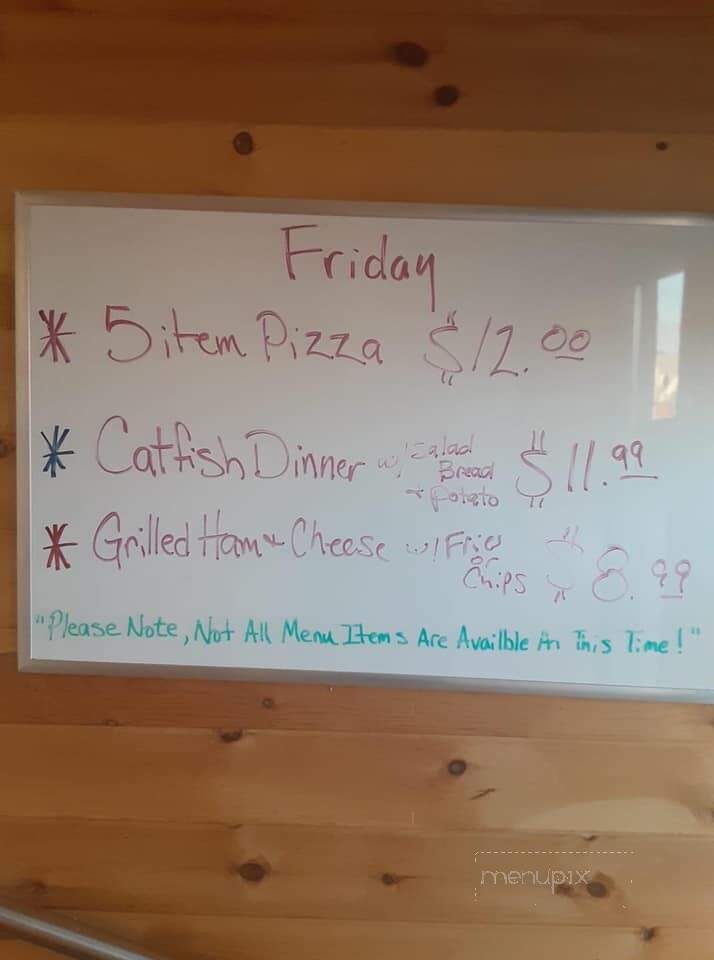 Friday
* 5 item Pizza $12.00
* Catfish Dinner w/ Salad Bread + Potato $11.99
* Grilled Ham & Cheese w/ Fries or Chips $8.99
"Please Note, Not All Menu Items Are Availble At This Time!"
menupix